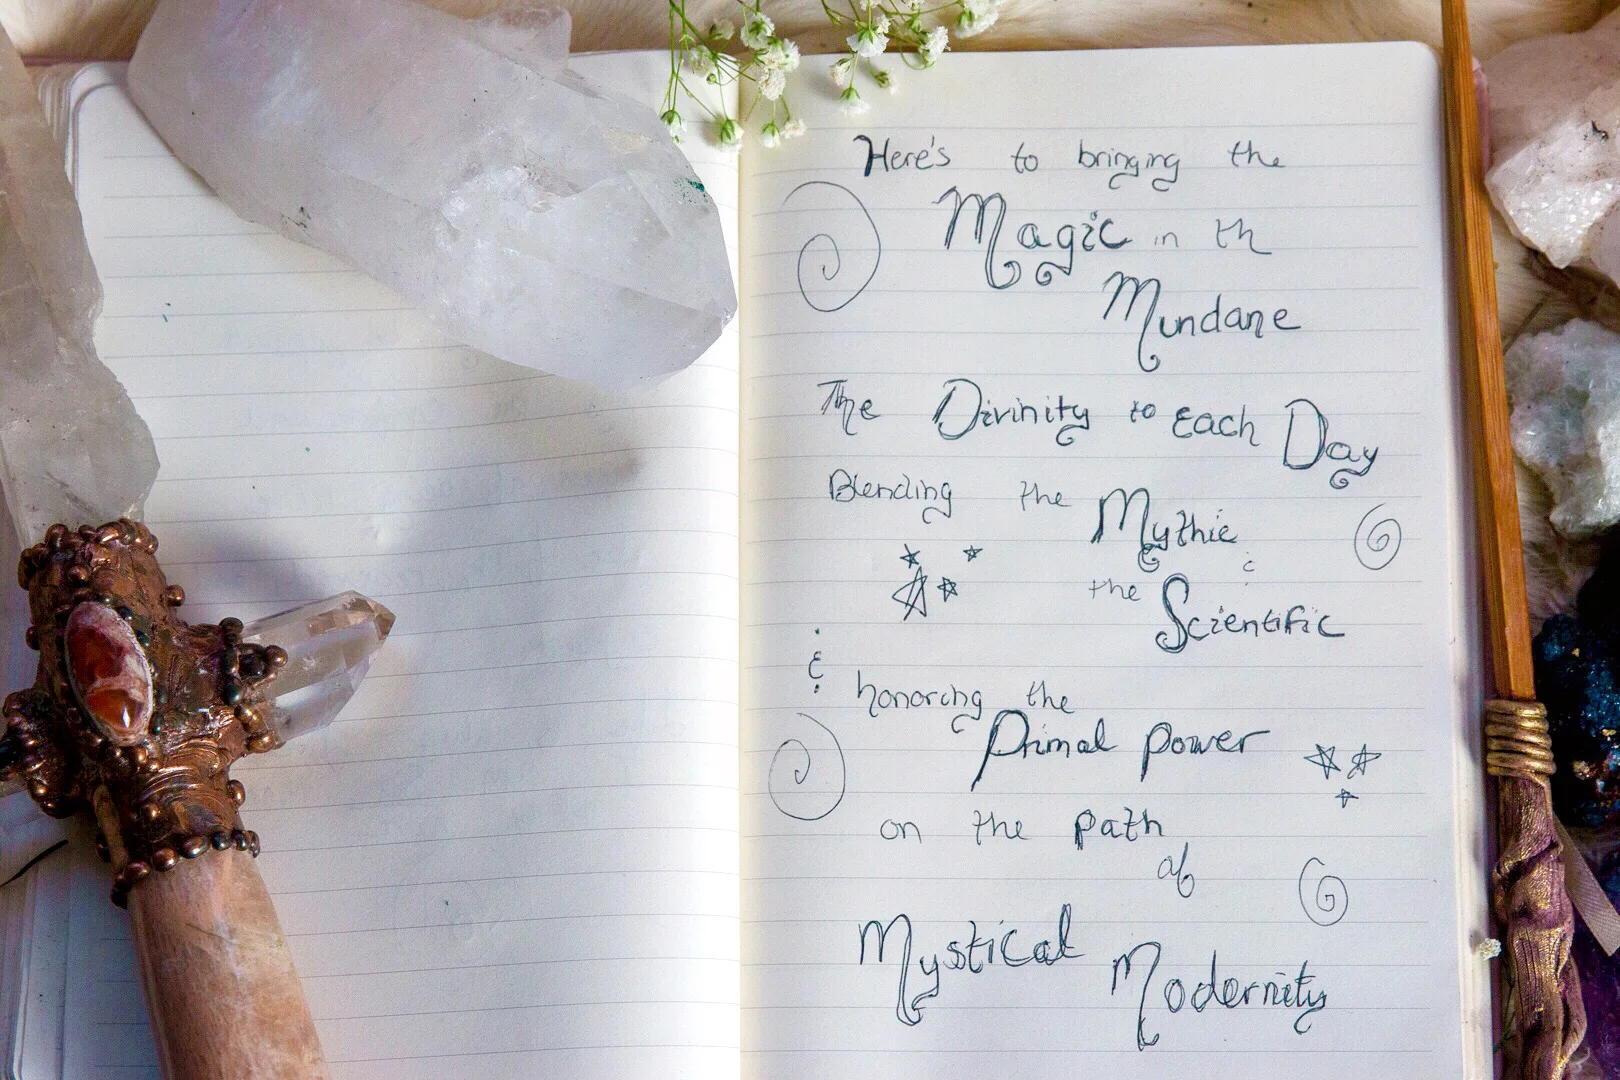 Here's to bringing the
Magic in th
Mundane
The Divinity to Each Day
Blending the Mythic
&
the Scientific
&
honoring the
Primal power
on the path
of
Mystical Modernity